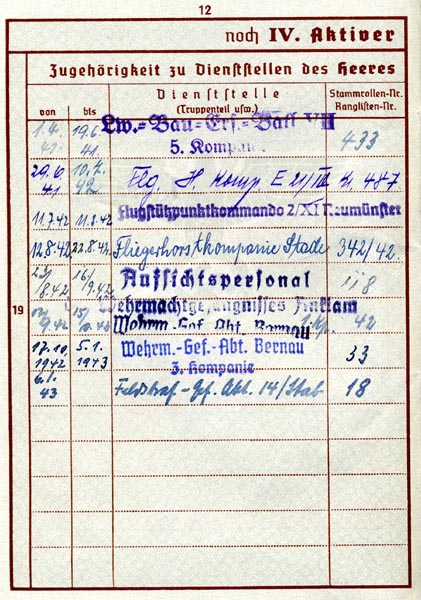 12
noch IV. Aktiver
Zugehörigkeit zu Dienststellen des Heeres
von bis Dienststelle (Truppenteil usw.) Stammrollen-Nr. Ranglisten-Nr.
1.4. 41 19.6 41. Lw.-Bau-Ers.-Batl. VII 5. Kompanie 433
29.6 41 10.7. 42 Flg. H. Komp. E 487
11.7.42 11.8.42 Flugstützpunktkommando 2/XI Neumünster
12.8.42 22.8.42. Fliegerhorstkompanie Stade 342/42.
8.42 16/ 9.42 Aufsichtspersonal 118
19
9.42 Wehrmachtgefängnisses Anklam
Wehrm.-Gef. Abt. Bernau 42
17.10. 1942 5.1. 1943 Wehrm.-Gef.-Abt. Bernau 3. Kompanie 33
6.1. 43 Feldstraf-Gef. Abt. 14/Stab 18